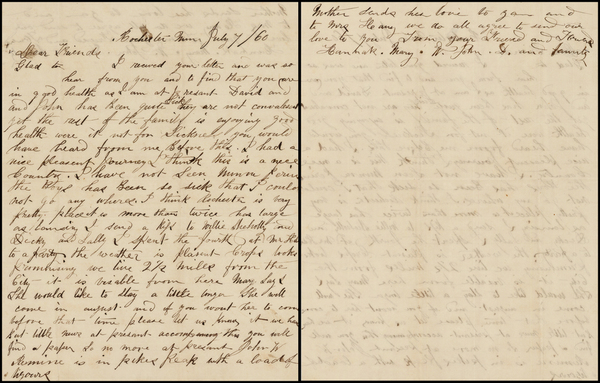 Rochester Min July 7/60
Dear Friends
Glad to I recived your letter and was
hear from you and to find that you are
in good health as I am at presant David and
and John has been quite Sick they are not convalesent
yet the rest of the family is enjoying good
health were it not for Sickness you would
have heard from me before this. I had a
nice pleasent Journey I think this is a nice
Country. I have not Seen
the Boys has been so sick that I could
not go any where. I think Rochester is very
pretty place it is more than twice has large
as I send a kiss to Willie and
Dicky and Sally I Spent the fourth at Mr
to a party the wether is plesant Crops looks
promising we live 2 1/2 mills from the
City it is visable from here Mary Says
She would like to stay a little longer She will
come in august and if you want her to come
before that time please let us know it we have
but little news at presant accompaning this you will
find a paper So no more at presant John W
is in pikes peak with a load of
Mother Sends her love to you and
to Mrs we do all agree to send our
love to you From your Friend and
Hannah. Mary. W. John. D. and family